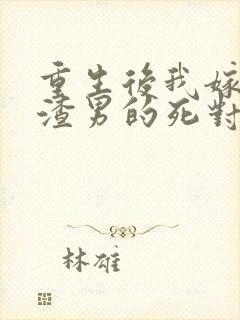 重生後我嫁
渣男的死對
林雄